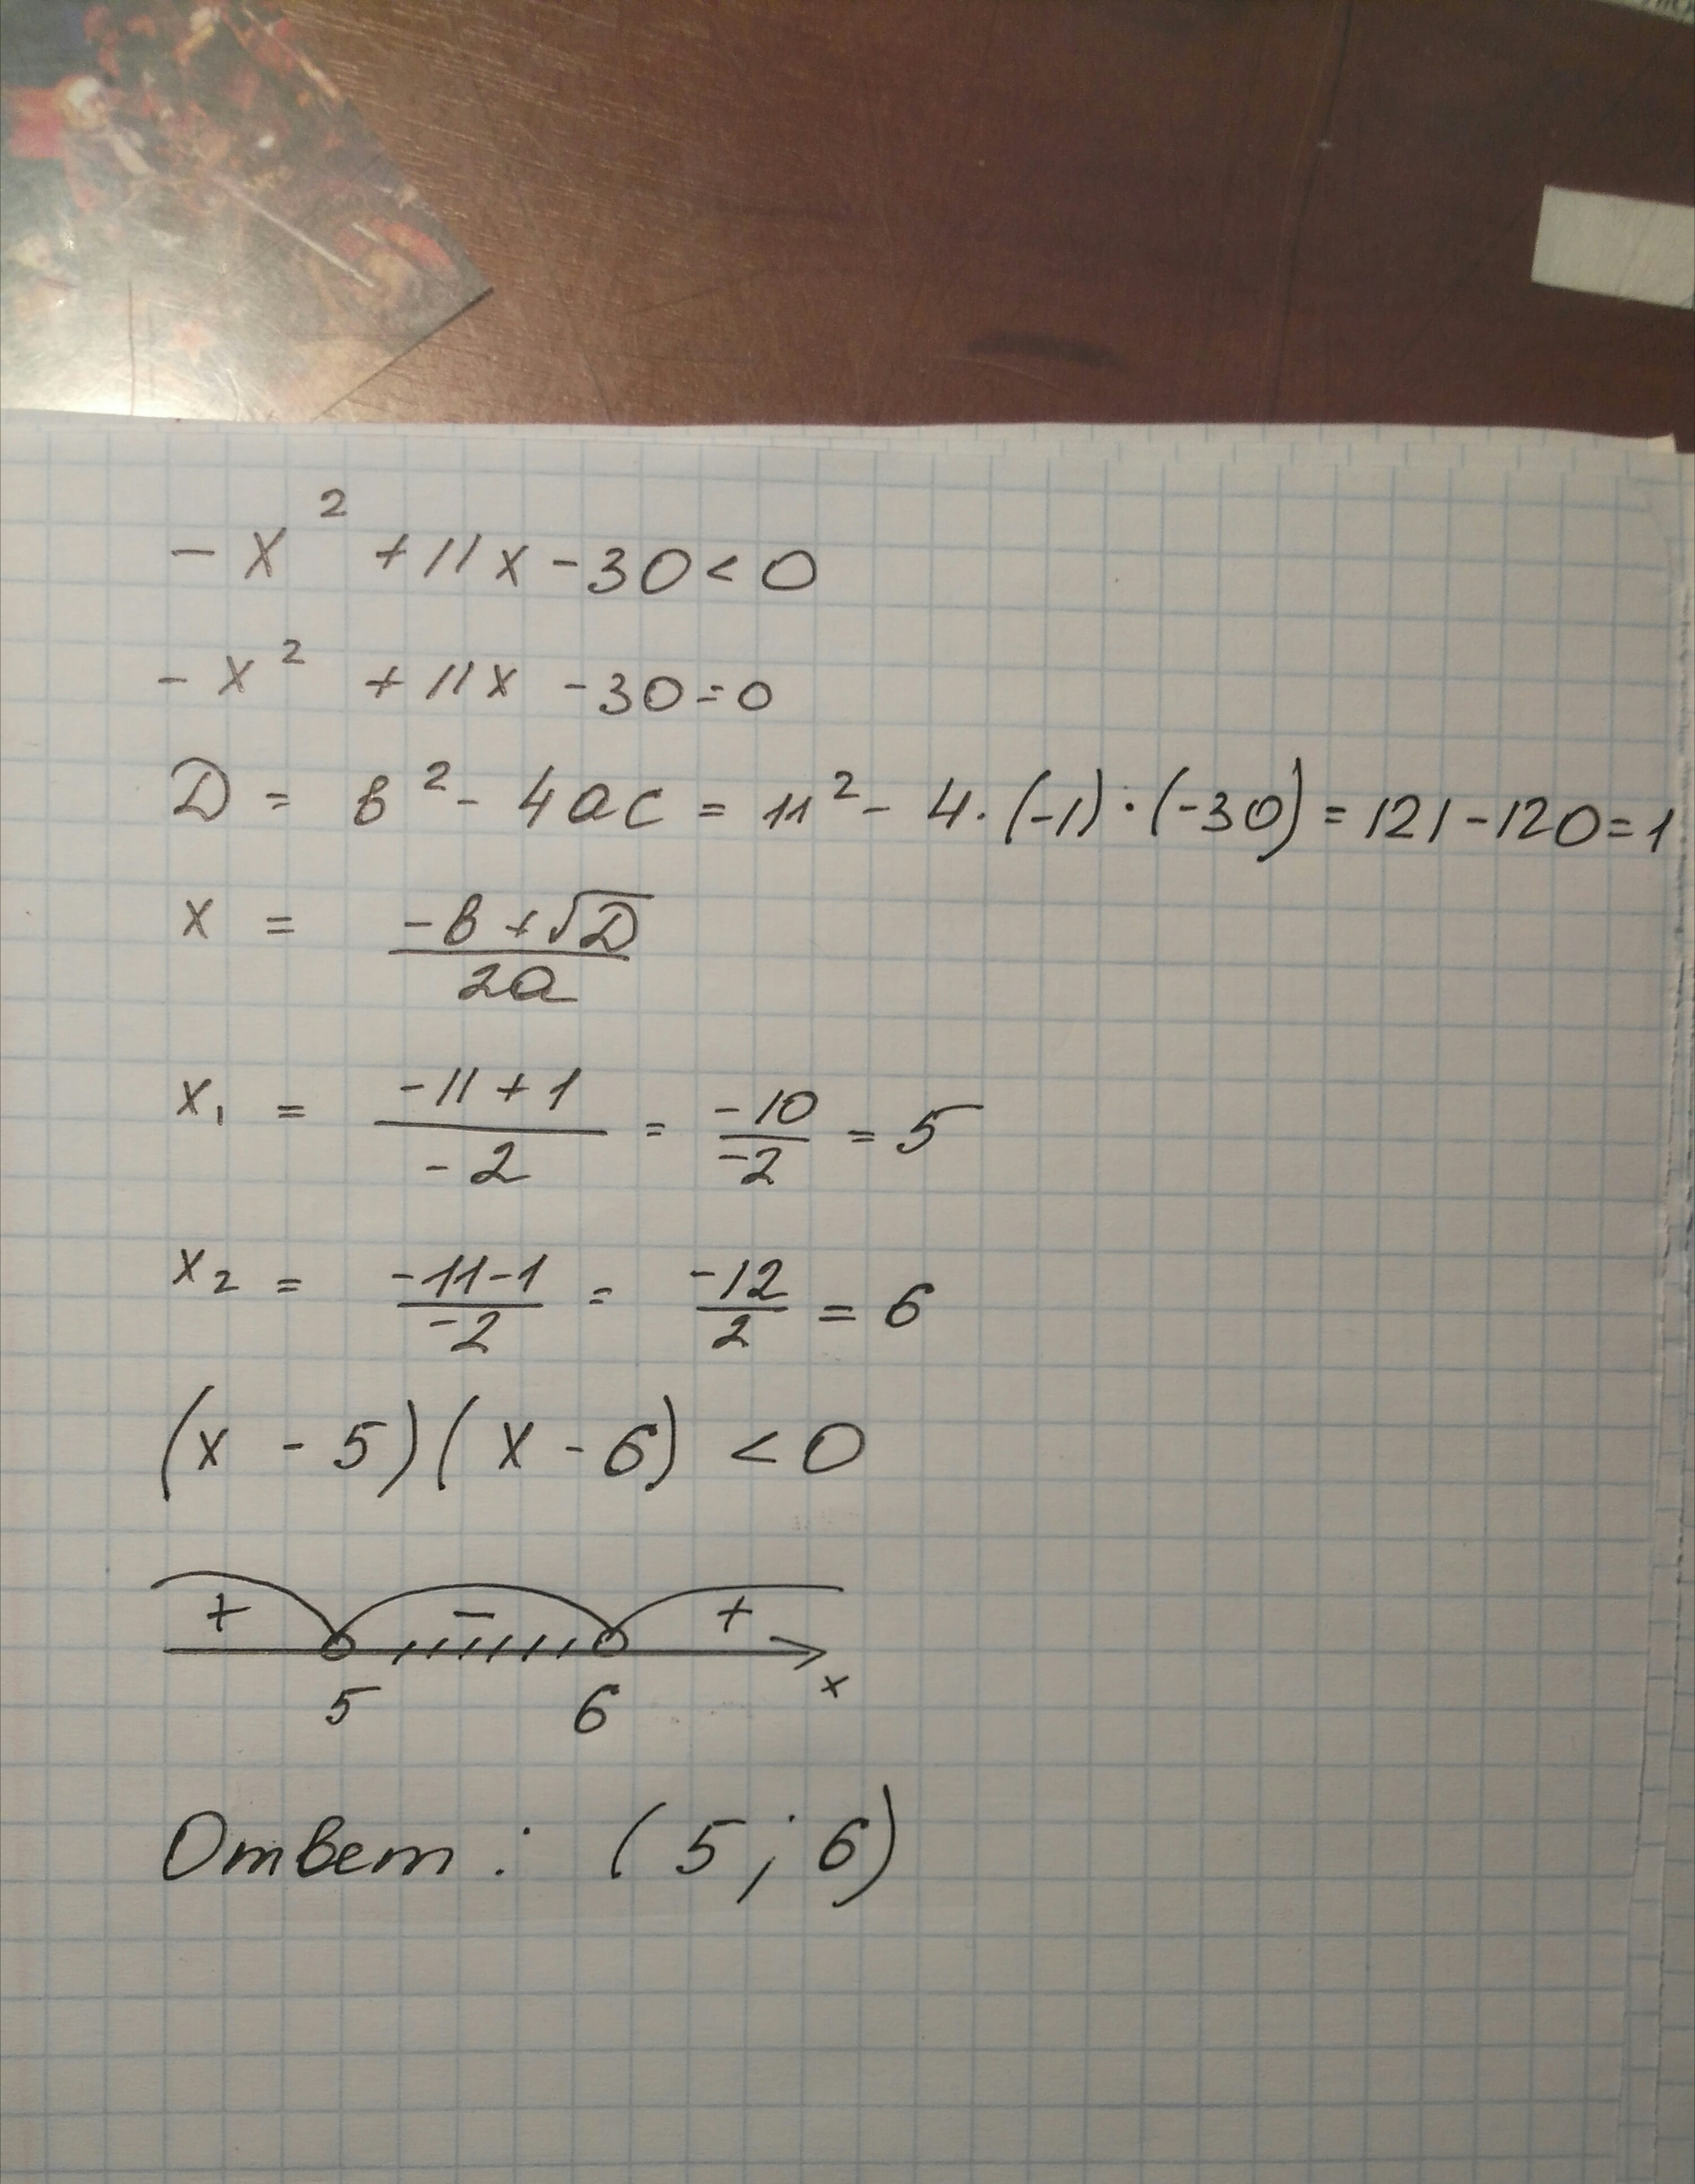 -x² + 11x - 30 < 0
-x² + 11x - 30 = 0
D = в² - 4ac = 11² - 4·(-1)·(-30) = 121 - 120 = 1
x = (-в + √D)/(2a)
x₁ = (-11 + 1)/(-2) = (-10)/(-2) = 5
x₂ = (-11 - 1)/(-2) = (-12)/2 = 6
(x - 5)(x - 6) < 0
+ - +
5 6 x
Ответ: (5; 6)